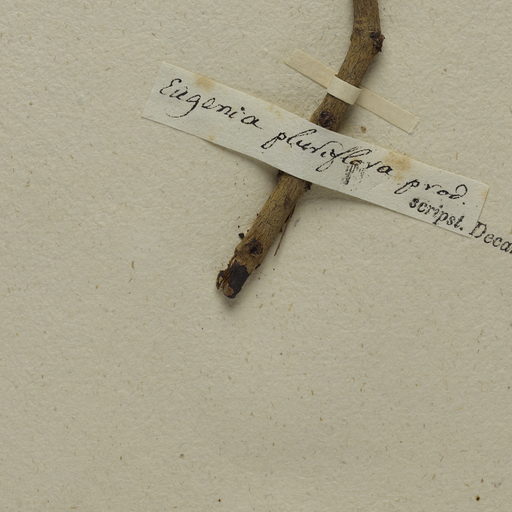 Eugenia pluriflora prod.
scripst. Decan